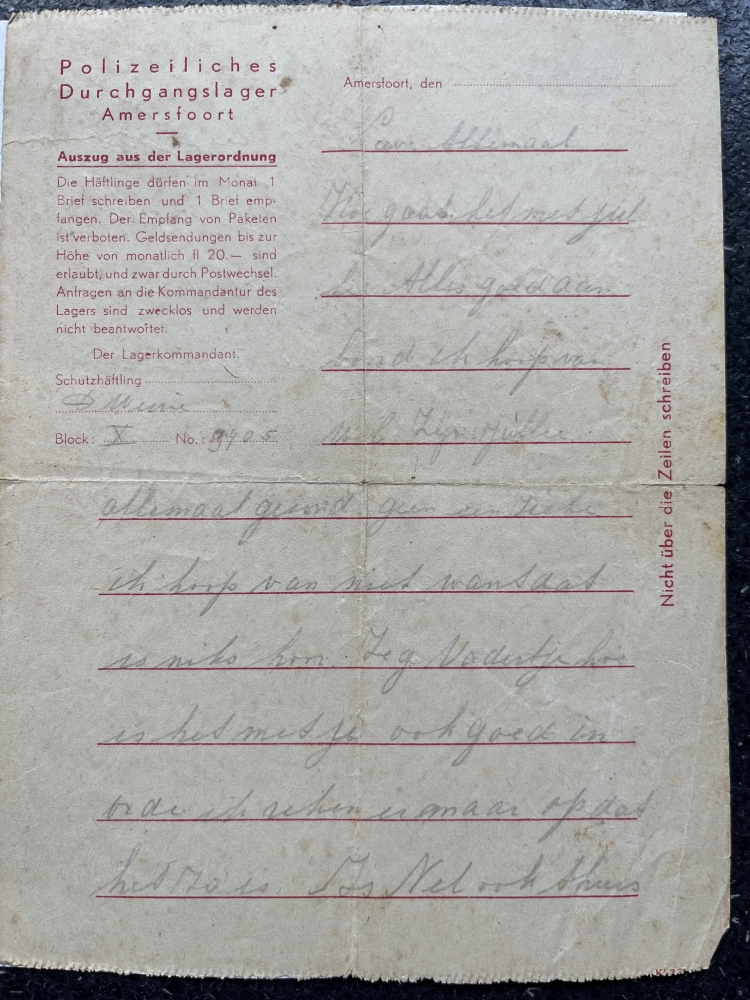 Polizeiliches
Durchgangslager
Amersfoort
Auszug aus der Lagerordnung
Die Häftlinge dürfen im Monat 1
Brief schreiben und 1 Brief emp-
fangen. Der Empfang von Paketen
ist verboten. Geldsendungen bis zur
Höhe von monatlich fl 20.— sind
erlaubt, und zwar durch Postwechsel.
Anfragen an die Kommandantur des
Lagers sind zwecklos und werden
nicht beantwortet.
Der Lagerkommandant.
Schutzhäftling
D
Block: X No.: 9405
Amersfoort, den
Allemaal
Hoe gaat het met jul
lie Alles goed aan
boord ik hoop van
wel Zijn jullie
allemaal gezond geen een zieke
ik hoop van niet want dat
is niks hoor. Zeg Vadertje hoe
is het met je ook goed in
orde ik reken er maar op dat
het zo is. Is Nel ook thuis
Nicht über die Zeilen schreiben